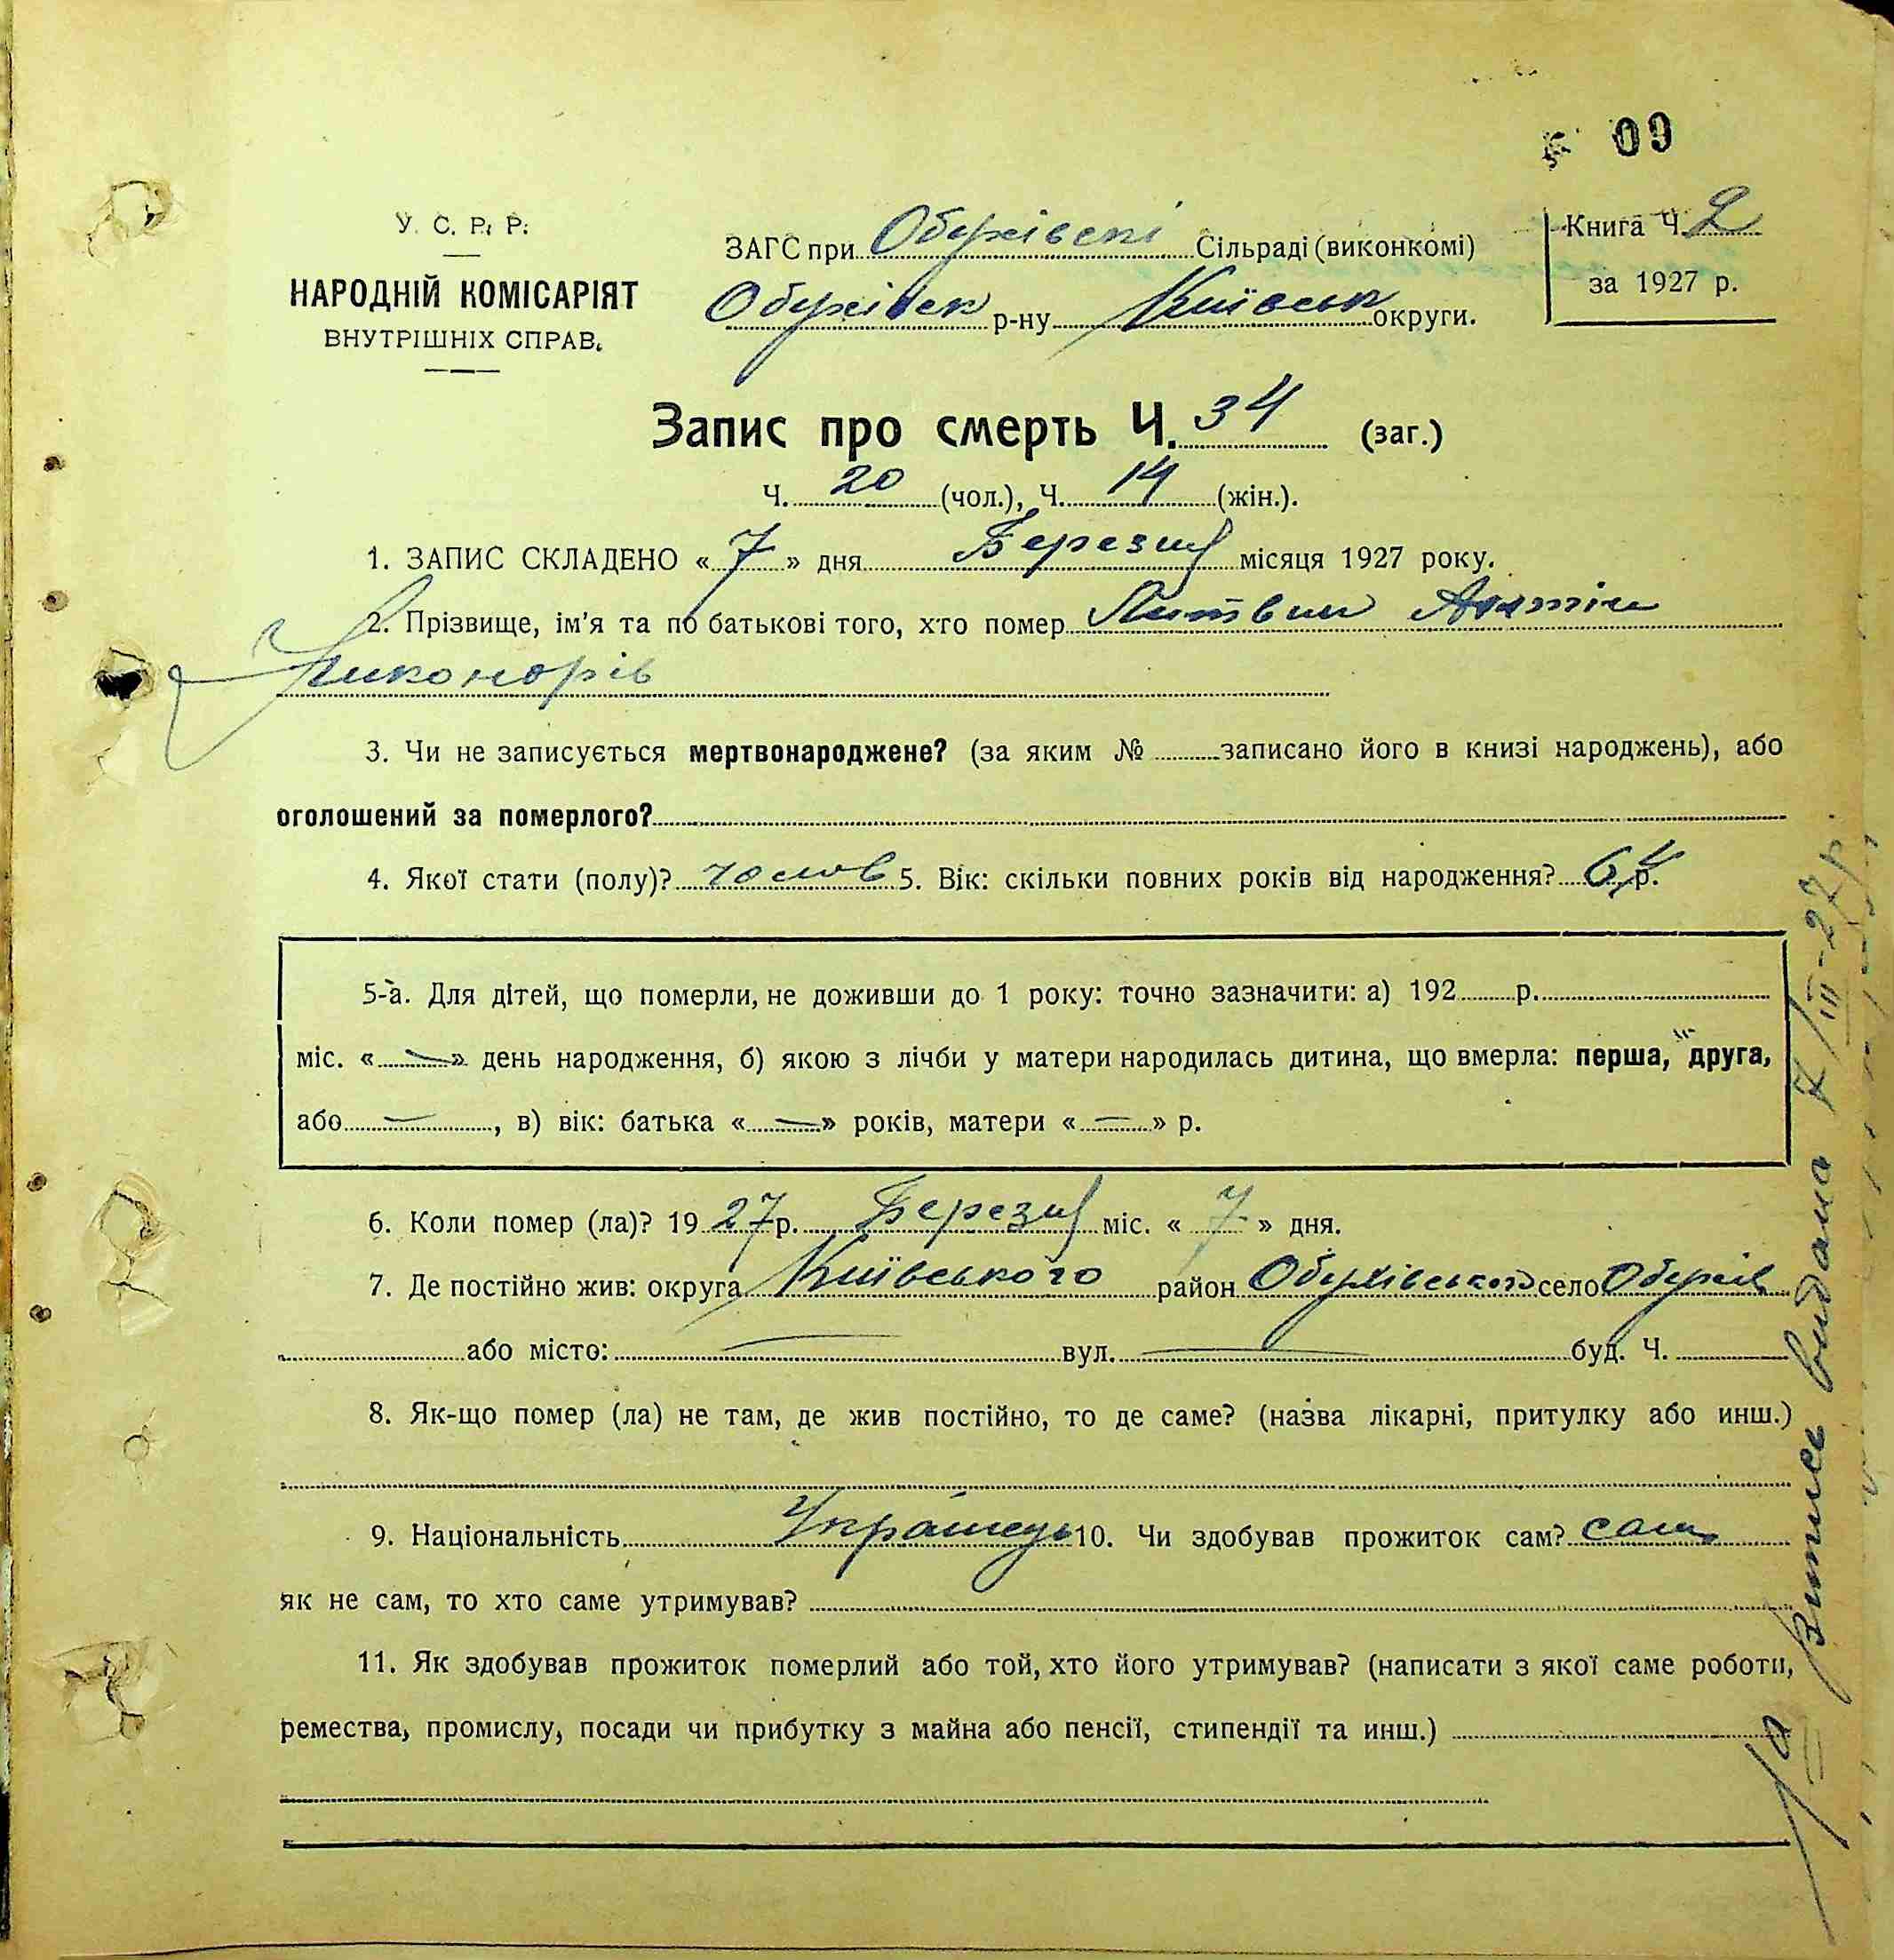 09
У. С. Р. Р.
НАРОДНІЙ КОМІСАРІЯТ
ВНУТРІШНІХ СПРАВ.
ЗАГС при Обухівскі Сільраді (виконкомі)
Обухівськ р-ну Київськ округи.
Книга Ч. 2
за 1927 р.
Запис про смерть Ч. 34 (заг.)
Ч. 20 (чол.), Ч. 14 (жін.).
1. ЗАПИС СКЛАДЕНО « 7 » дня Березня місяця 1927 року.
2. Прізвище, ім'я та по батькові того, хто помер Литвин
Никонорів
3. Чи не записується мертвонароджене? (за яким № записано його в книзі народжень), або
оголошений за померлого?
4. Якої стати (полу)? чолов 5. Вік: скільки повних років від народження? 64 р.
5-а. Для дітей, що померли, не доживши до 1 року: точно зазначити: а) 192 р.
міс. « — » день народження, б) якою з лічби у матери народилась дитина, що вмерла: перша, друга,
або — , в) вік: батька « — » років, матери « — » р.
6. Коли помер (ла)? 19 27 р. Березня міс. « 7 » дня.
7. Де постійно жив: округа Київського район Обухівського село Обухів
або місто: — вул. — буд. Ч.
8. Як-що помер (ла) не там, де жив постійно, то де саме? (назва лікарні, притулку або инш.)
9. Національність Українець 10. Чи здобував прожиток сам? сам
як не сам, то хто саме утримував?
11. Як здобував прожиток померлий або той, хто його утримував? (написати з якої саме роботи,
ремества, промислу, посади чи прибутку з майна або пенсії, стипендії та инш.)
Випись видана 7/III-27р.